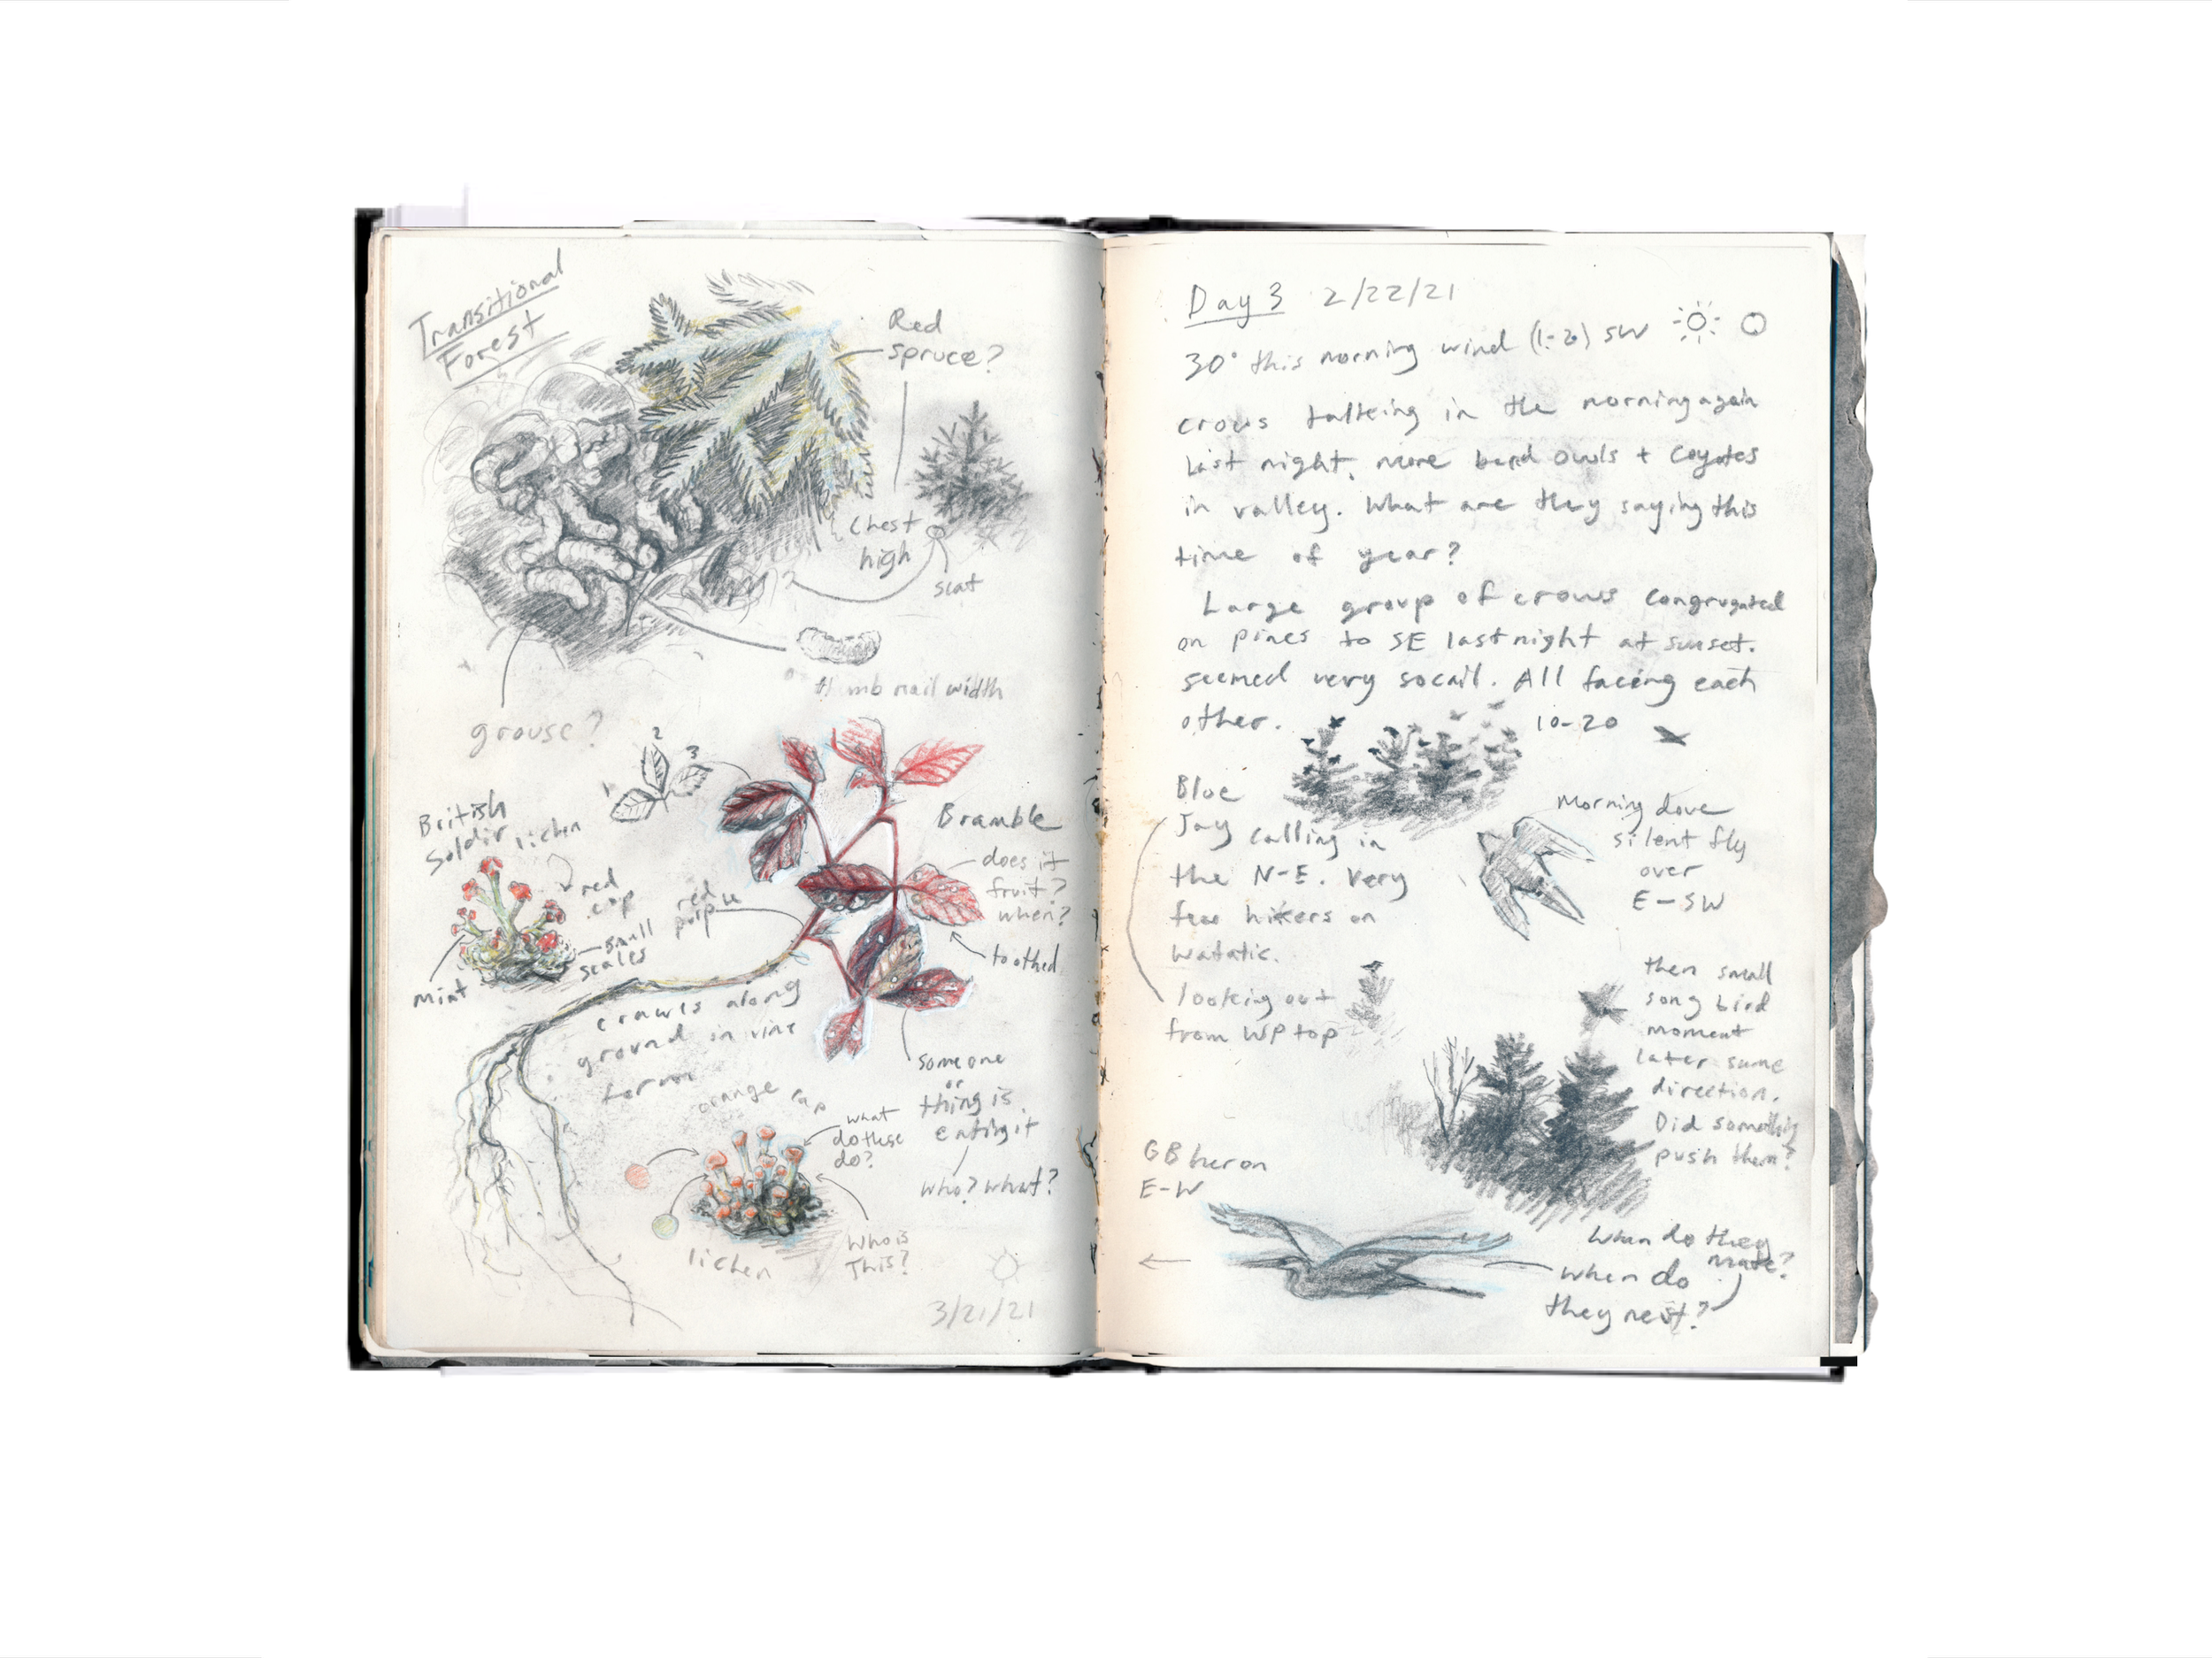 Transitional
Forest
Red
spruce?
chest
high
scat
thumb nail width
grouse?
1 2 3
British
Soldir lichen
red
cap
small
scales
mint
red
purple
Bramble
does it
fruit?
when?
toothed
crawls along
ground in vine
form
someone
or
thing is
eating it
who? what?
orange cap
what
do these
do?
who is
This?
lichen
3/21/21
Day 3 2/22/21
30° this morning wind (1-2) SW
crows talking in the morning again
last night, more bard owls + coyotes
in valley. What are they saying this
time of year?
Large group of crows congrugated
on pines to SE last night at sunset.
seemed very socail. All facing each
other.
10-20
Blue
Jay calling in
the N-E. Very
few hikers on
watatic.
looking out
from WP top
Morning dove
silent fly
over
E-SW
then small
song bird
moment
later same
direction.
Did something
push them?
GB heron
E-W
When do they
mate?
when do
they nest?